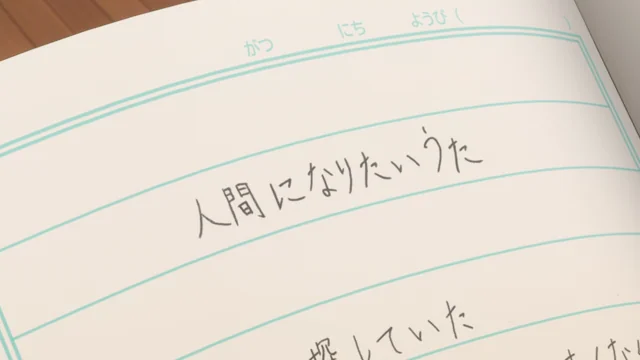 がつ にち ようび ( )
人間になりたいうた
探していた